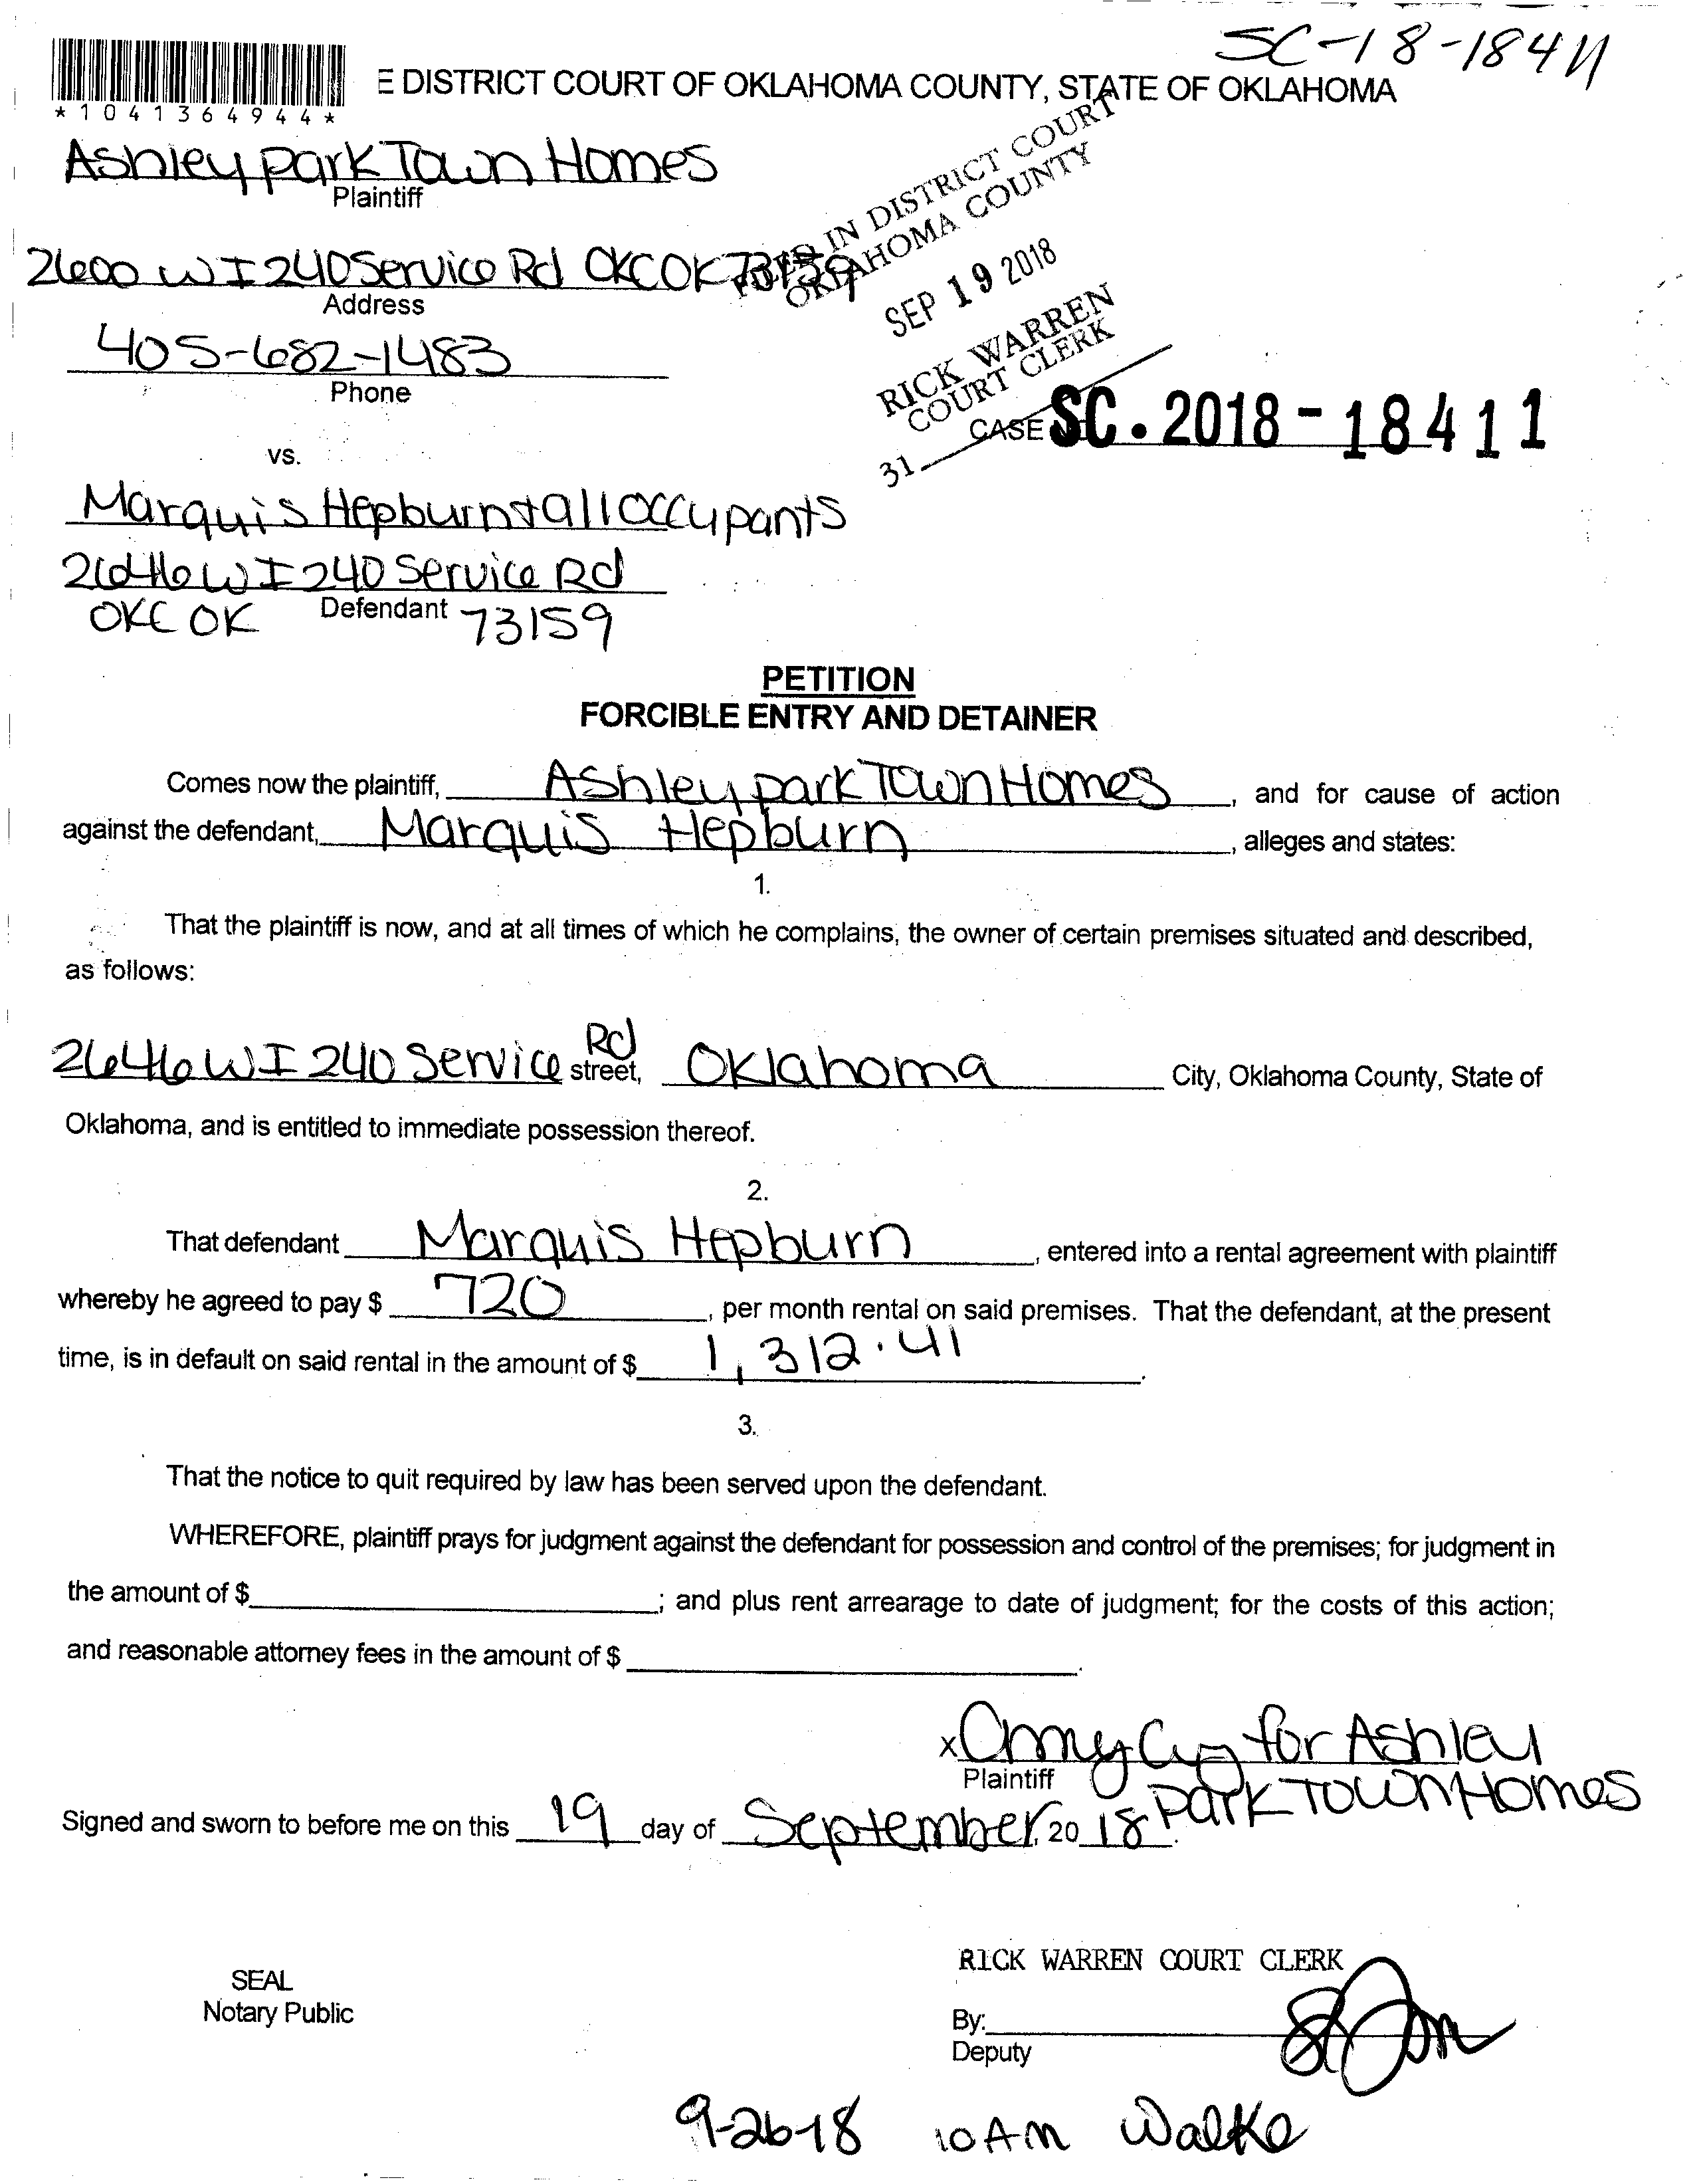 SC-18-18411
E DISTRICT COURT OF OKLAHOMA COUNTY, STATE OF OKLAHOMA
*1041364944*
Ashley park Town Homes
Plaintiff
FILED IN DISTRICT COURT
OKLAHOMA COUNTY
2600 W I 240 Service Rd OKC OK 73159
Address
SEP 19 2018
405-682-1483
Phone
RICK WARREN
COURT CLERK
31
CASE SC.2018-18411
vs.
Marquis Hepburn + all occupants
2646 W I 240 Service Rd
OKC OK Defendant 73159
PETITION
FORCIBLE ENTRY AND DETAINER
Comes now the plaintiff, Ashley park Town Homes, and for cause of action
against the defendant, Marquis Hepburn, alleges and states:
1.
That the plaintiff is now, and at all times of which he complains, the owner of certain premises situated and described,
as follows:
2646 W I 240 Service Rd street, Oklahoma City, Oklahoma County, State of
Oklahoma, and is entitled to immediate possession thereof.
2.
That defendant Marquis Hepburn, entered into a rental agreement with plaintiff
whereby he agreed to pay $ 720, per month rental on said premises. That the defendant, at the present
time, is in default on said rental in the amount of $ 1,312.41.
3.
That the notice to quit required by law has been served upon the defendant.
WHEREFORE, plaintiff prays for judgment against the defendant for possession and control of the premises; for judgment in
the amount of $ ; and plus rent arrearage to date of judgment; for the costs of this action;
and reasonable attorney fees in the amount of $ .
x for Ashley
Plaintiff
Park Town Homes
Signed and sworn to before me on this 19 day of September, 20 18.
RICK WARREN COURT CLERK
SEAL
Notary Public
By:
Deputy
9-26-18 10 AM Walke